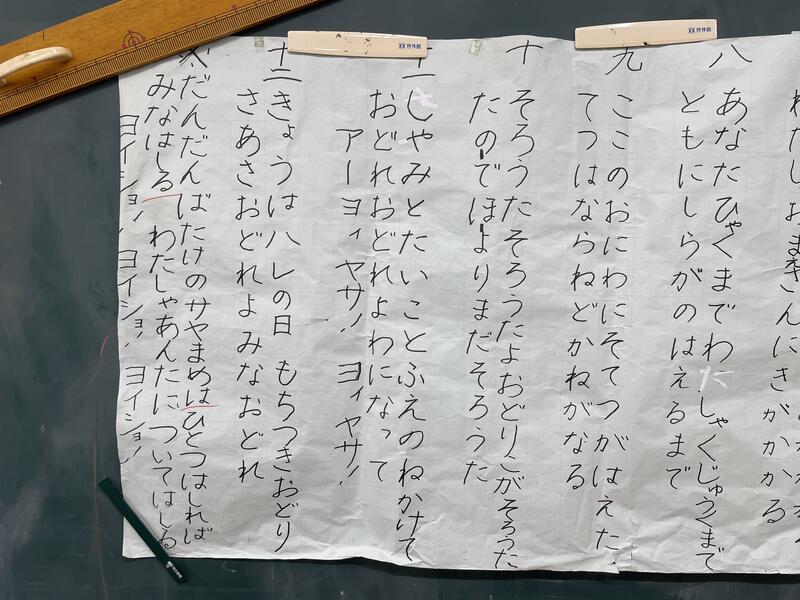 わたしおまきんにきがかかる
八 あなたひゃくまでわたしゃくじゅうくまで
ともにしらがのはえるまで
九 ここのおにわにそてつがはえた
てつはならねどかねがなる
十 そろうたそろうたよおどりこがそろうた
たのでほよりまだそろうた
十一 しゃみとたいことふえのねかけて
おどれおどれよわになって
アーヨイヤサノヨイヤサノ
十二 きょうはハレの日 もちつきおどり
さあさおどれよみなおどれ
だんだんばたけのサヤまめはひとつはしれば
みなはしる わたしゃあんたについてはしる
ヨイショ ヨイショ ヨイショ
啓林館
啓林館